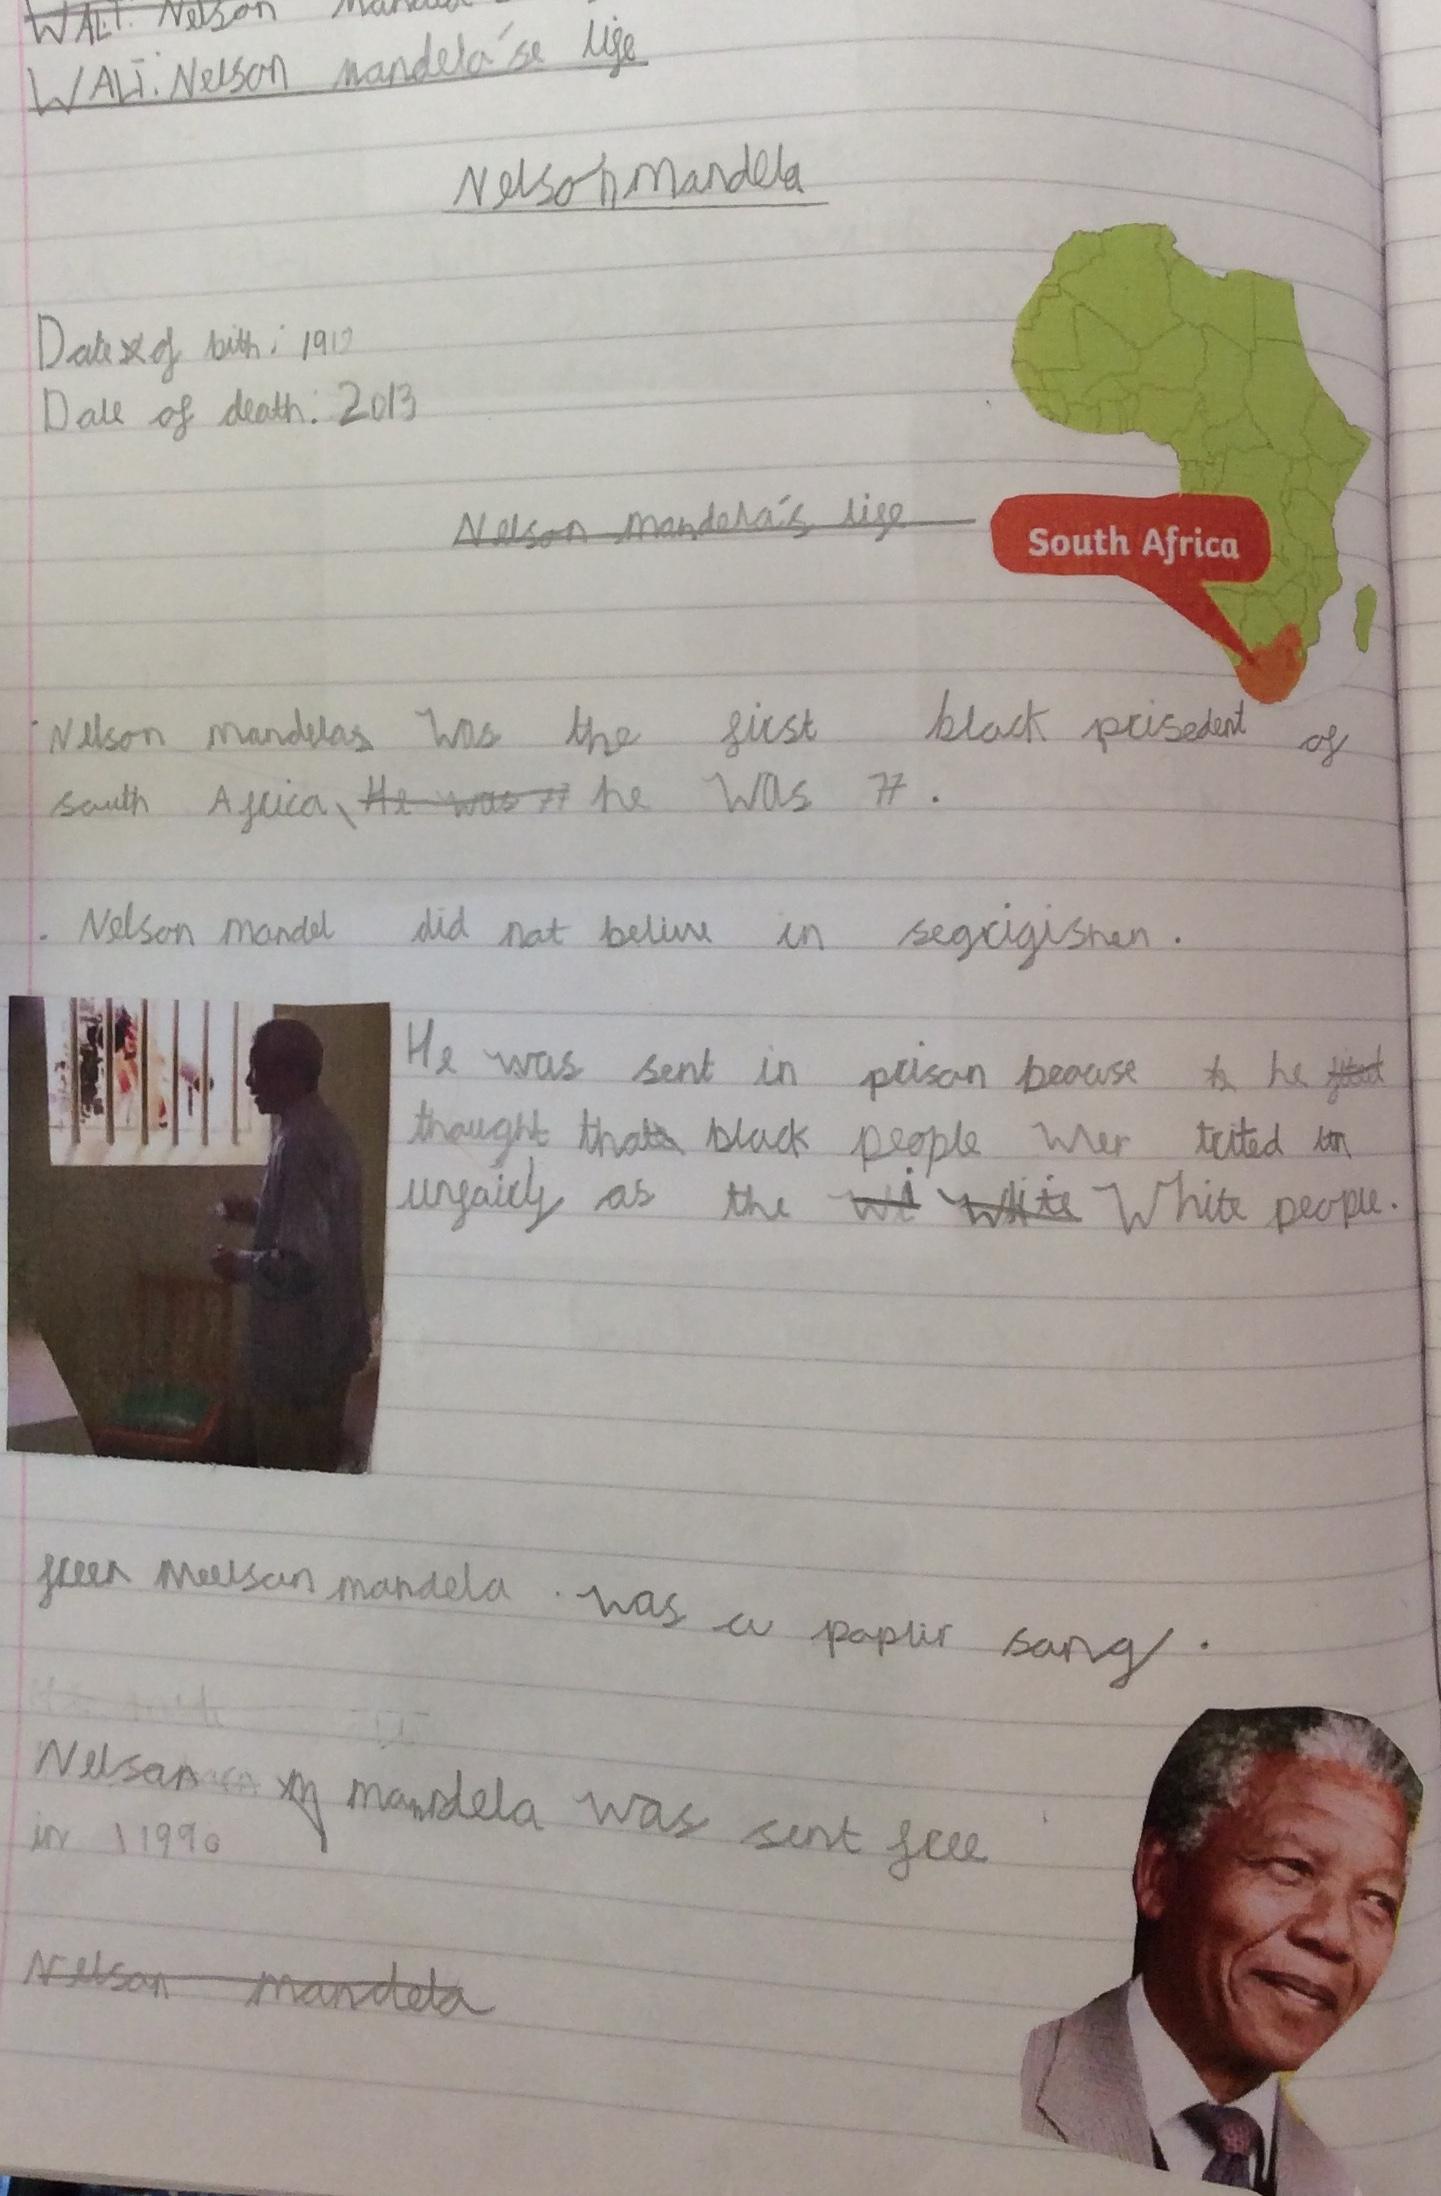 WALT: Nelson
WALT: Nelson mandela'se life
Nelson Mandela
Date of bith: 191
Date of death: 2013
Nelson mandela's life
South Africa
Nelson mandelas was the first black prisedent of
south Africa, He was 77 he was 77.
. Nelson mandel did not belive in segrigishen.
He was sent in prison beacuse he
thought that black people wer trited
unfairly as the wi white White people.
freen Neelsan mandela . was a paplir sang.
Nelsan mandela was sent free
in 1990
Nelsan mandela